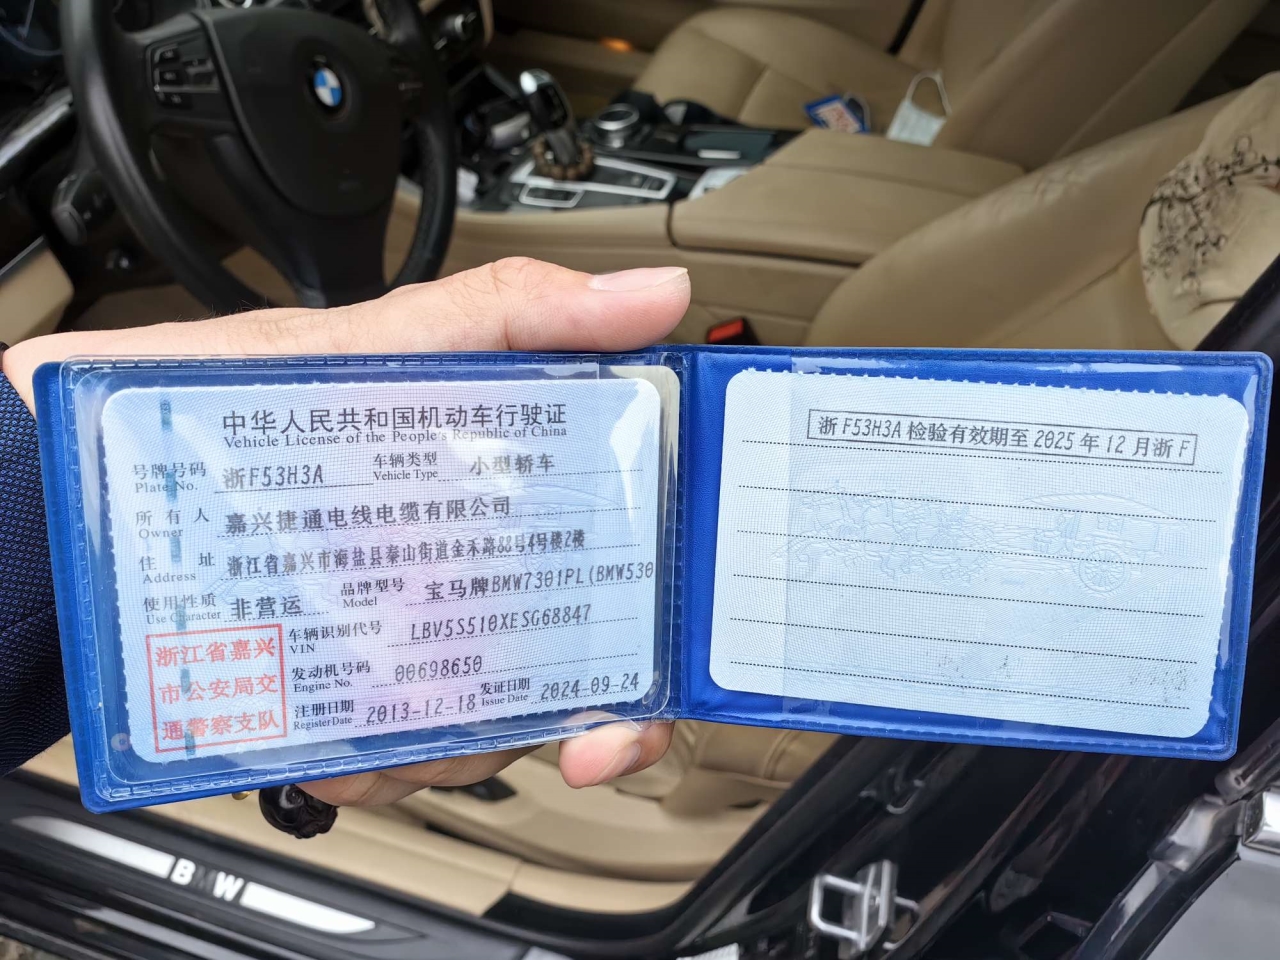 中华人民共和国机动车行驶证
Vehicle License of the People's Republic of China
号牌号码 浙F53H3A 车辆类型 小型轿车
Plate No. Vehicle Type
所有人 嘉兴捷通电线电缆有限公司
Owner
住址 浙江省嘉兴市海盐县秦山街道金禾路88号4号楼2楼
Address
使用性质 非营运 品牌型号 宝马牌BMW7301PL(BMW530
Use Character Model
车辆识别代号 LBV5S510XESG68847
VIN
发动机号码 00698650
Engine No.
注册日期 2013-12-18 发证日期 2024-09-24
Register Date Issue Date
浙江省嘉兴
市公安局交
通警察支队
浙F53H3A检验有效期至2025年12月浙F
BMW